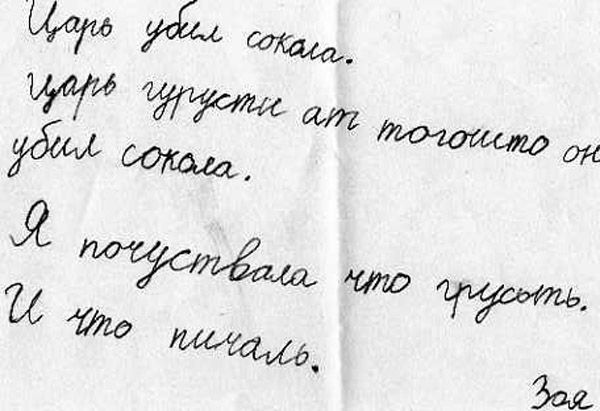 Царь убил сокола.
Царь гурусти ат тогошто он
убил сокола.
Я почуствала что грусыть.
И что пичаль.
Зоя